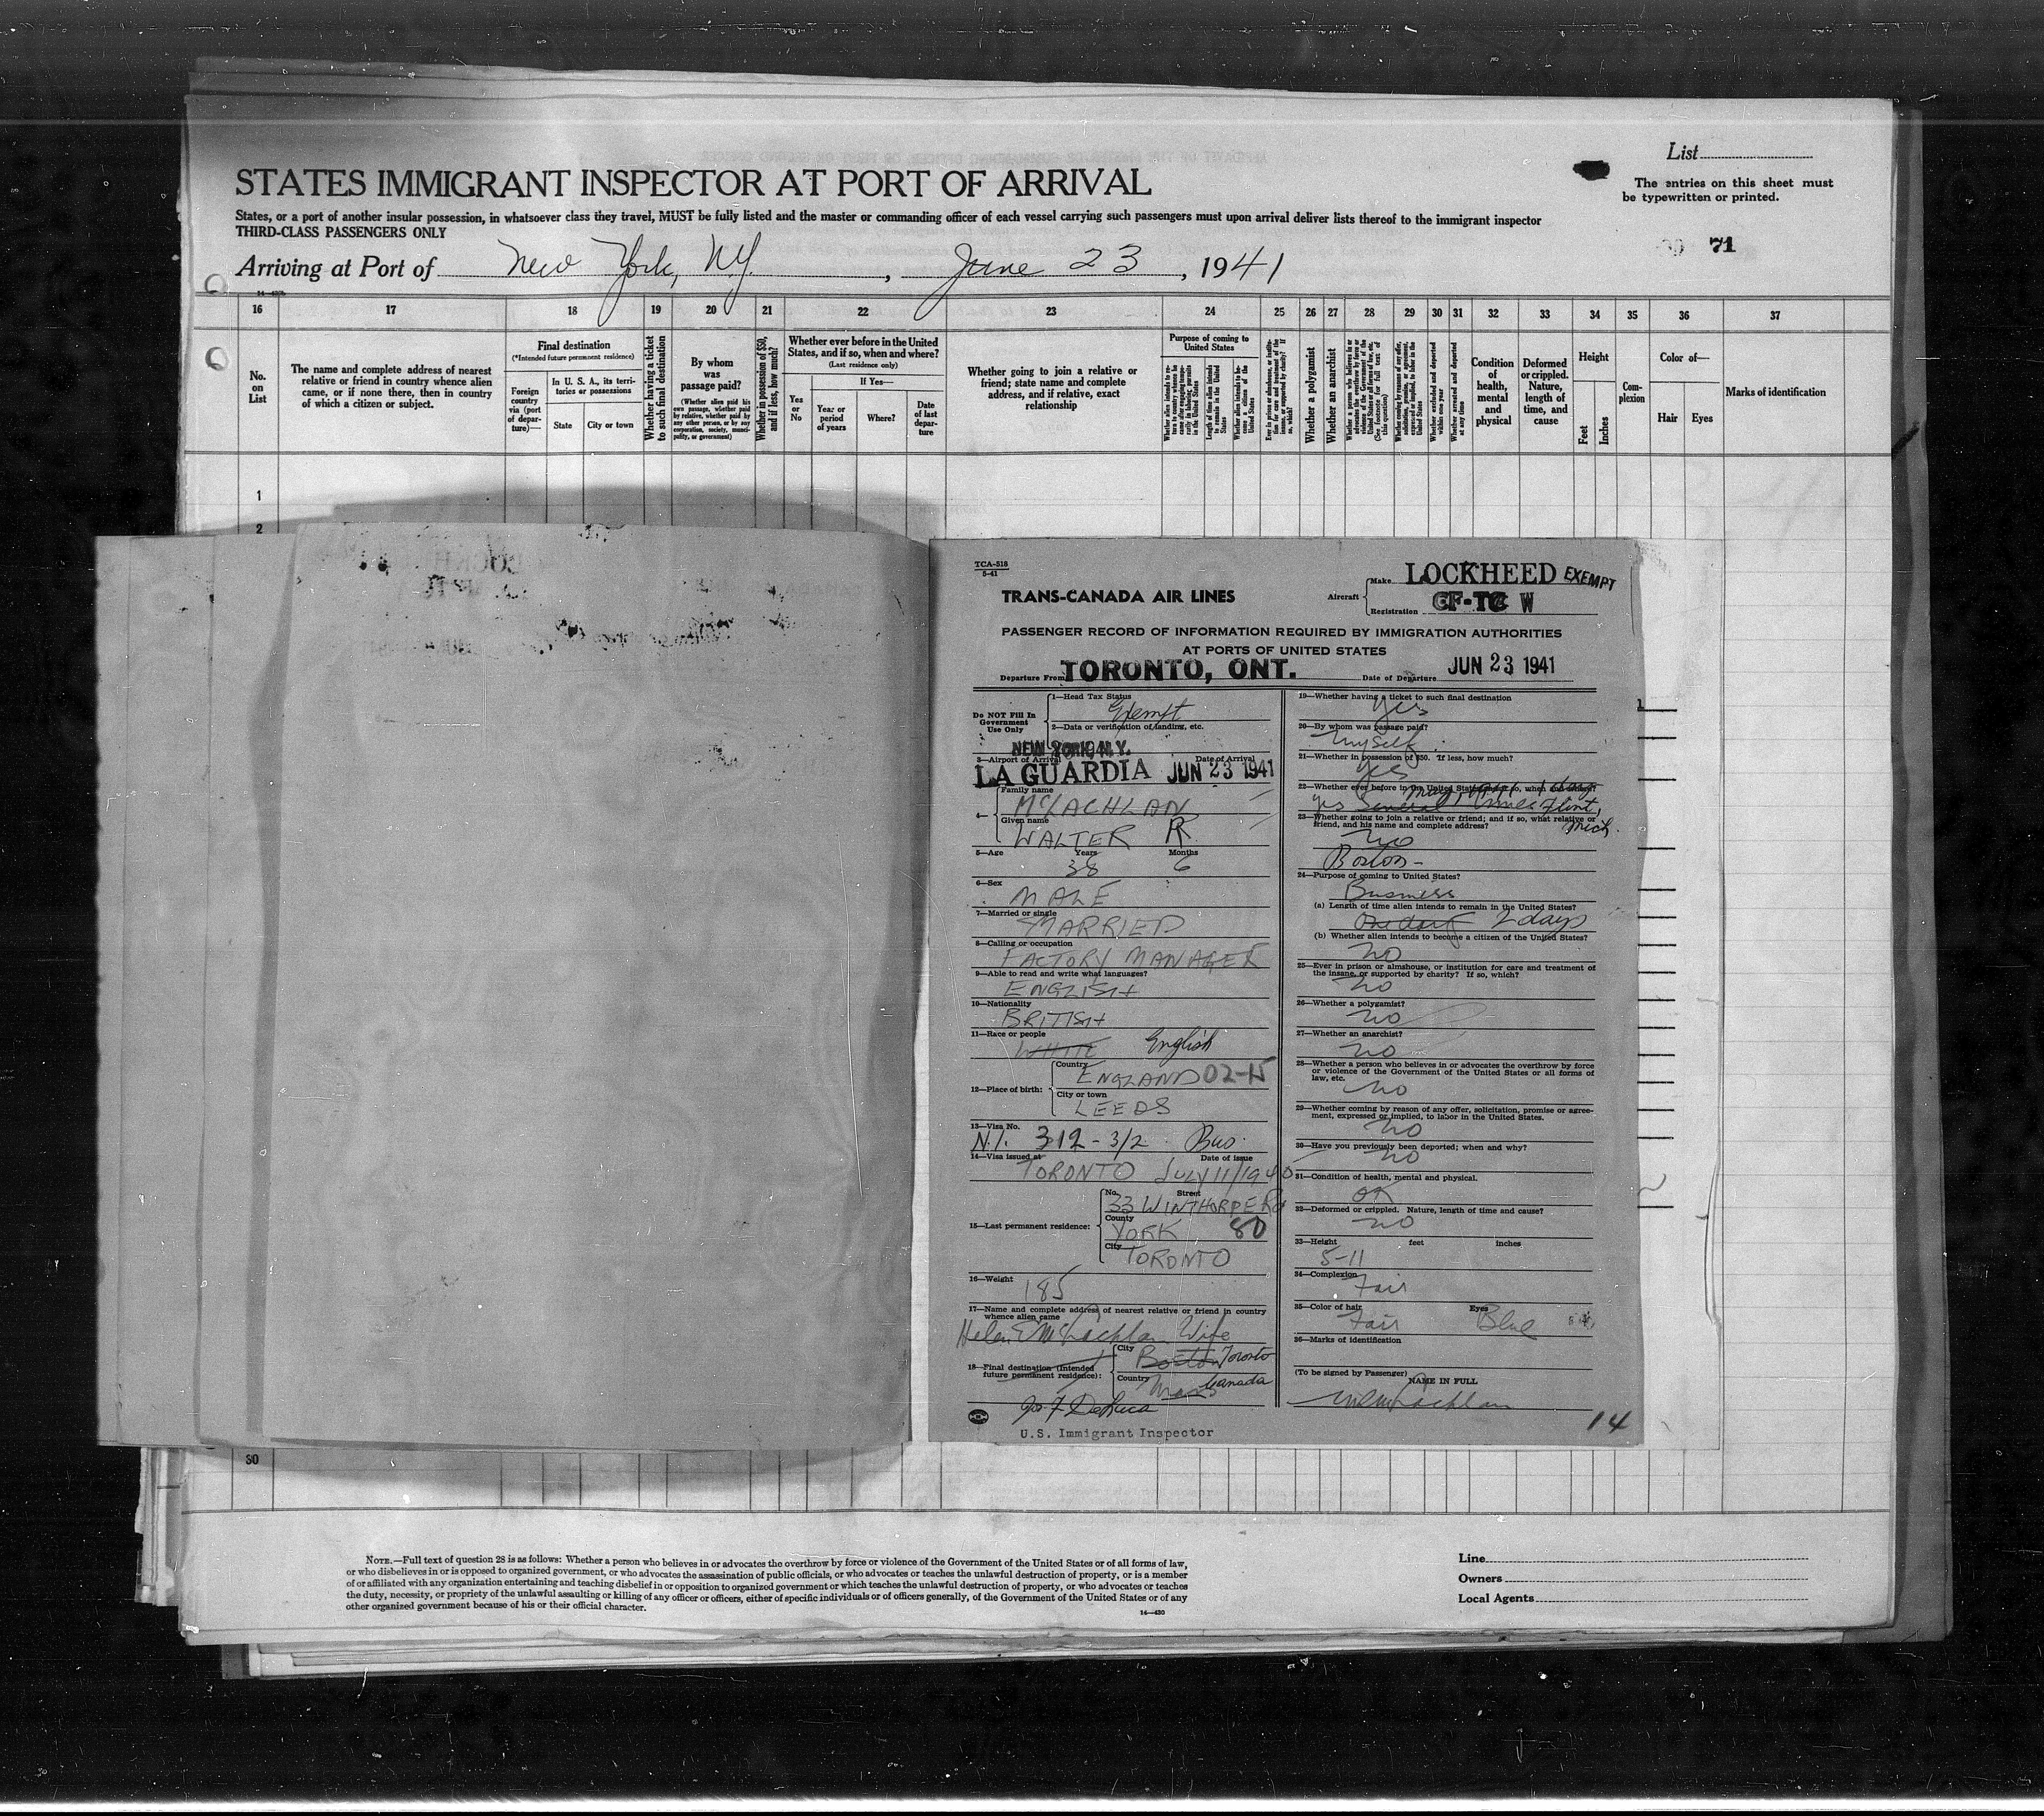 List
The entries on this sheet must
be typewritten or printed.
STATES IMMIGRANT INSPECTOR AT PORT OF ARRIVAL
States, or a port of another insular possession, in whatsoever class they travel, MUST be fully listed and the master or commanding officer of each vessel carrying such passengers must upon arrival deliver lists thereof to the immigrant inspector
THIRD-CLASS PASSENGERS ONLY
71
Arriving at Port of New York, N.Y., June 23, 1941
16 17 18 19 20 21 22 23 24 25 26 27 28 29 30 31 32 33 34 35 36 37
No.
on
List
The name and complete address of nearest
relative or friend in country whence alien
came, or if none there, then in country
of which a citizen or subject.
Final destination
(*Intended future permanent residence)
Foreign
country
via (port
of depar-
ture)—
In U. S. A., its terri-
tories or possessions
State
City or town
Whether having a ticket
to such final destination
By whom
was
passage paid?
(Whether alien paid his
own passage, whether paid
by relative, whether paid by
any other person, or by any
corporation, society, munici-
pality, or government)
Whether in possession of $50,
and if less, how much?
Whether ever before in the United
States, and if so, when and where?
(Last residence only)
Yes
or
No
If Yes—
Year or
period
of years
Where?
Date
of last
depar-
ture
Whether going to join a relative or
friend; state name and complete
address, and if relative, exact
relationship
Purpose of coming to
United States
Length of time alien intends
to remain in the United
States
Whether alien intends to be-
come a citizen of the
United States
Whether a polygamist
Whether an anarchist
Whether arrested and deported
at any time
Condition
of
health,
mental
and
physical
Deformed
or crippled.
Nature,
length of
time, and
cause
Height
Feet
Inches
Com-
plexion
Color of—
Hair
Eyes
Marks of identification
1
2
TCA-518
5-41
TRANS-CANADA AIR LINES
Aircraft
Make LOCKHEED EXEMPT
Registration CF-TC W
PASSENGER RECORD OF INFORMATION REQUIRED BY IMMIGRATION AUTHORITIES
AT PORTS OF UNITED STATES
Departure From TORONTO, ONT. Date of Departure JUN 23 1941
Do NOT Fill In
Government
Use Only
1—Head Tax Status
Exempt
2—Data or verification of landing, etc.
NEW YORK, N.Y.
3—Airport of Arrival Date of Arrival
LA GUARDIA JUN 23 1941
4—
Family name
McLACHLAN
Given name
WALTER R
5—Age Years Months
38 6
6—Sex
MALE
7—Married or single
MARRIED
8—Calling or occupation
FACTORY MANAGER
9—Able to read and write what languages?
ENGLISH
10—Nationality
BRITISH
11—Race or people
WHITE English
12—Place of birth:
Country
ENGLAND 02-15
City or town
LEEDS
13—Visa No.
N.I. 312 - 3/2 Bus.
14—Visa issued at Date of issue
TORONTO JULY 11/1940
15—Last permanent residence:
No. Street
33 WINTHORPE Rd
County
YORK 80
City
TORONTO
16—Weight
185
17—Name and complete address of nearest relative or friend in country
whence alien came
Helen E McLachlan Wife
18—Final destination (Intended
future permanent residence):
City Boston Toronto
Country Mass Canada
Jos F DeLuca
U.S. Immigrant Inspector
19—Whether having a ticket to such final destination
Yes
20—By whom was passage paid?
Myself
21—Whether in possession of $50. If less, how much?
Yes
22—Whether ever before in the United States and if so, when and where?
yes Several times Flint,
Mich.
23—Whether going to join a relative or friend; and if so, what relative or
friend, and his name and complete address?
no
Boston-
24—Purpose of coming to United States?
Business
(a) Length of time alien intends to remain in the United States?
One day 2 days
(b) Whether alien intends to become a citizen of the United States?
no
25—Ever in prison or almshouse, or institution for care and treatment of
the insane, or supported by charity? If so, which?
no
26—Whether a polygamist?
no
27—Whether an anarchist?
no
28—Whether a person who believes in or advocates the overthrow by force
or violence of the Government of the United States or all forms of
law, etc.
no
29—Whether coming by reason of any offer, solicitation, promise or agree-
ment, expressed or implied, to labor in the United States.
no
30—Have you previously been deported; when and why?
no
31—Condition of health, mental and physical.
OK
32—Deformed or crippled. Nature, length of time and cause?
no
33—Height feet inches
5-11
34—Complexion
Fair
35—Color of hair Eyes
Fair Blue
36—Marks of identification
(To be signed by Passenger)
NAME IN FULL
WR McLachlan
14
30
NOTE.—Full text of question 28 is as follows: Whether a person who believes in or advocates the overthrow by force or violence of the Government of the United States or of all forms of law,
or who disbelieves in or is opposed to organized government, or who advocates the assassination of public officials, or who advocates or teaches the unlawful destruction of property, or is a member
of or affiliated with any organization entertaining and teaching disbelief in or opposition to organized government or which teaches the unlawful destruction of property, or who advocates or teaches
the duty, necessity, or propriety of the unlawful assaulting or killing of any officer or officers, either of specific individuals or of officers generally, of the Government of the United States or of any
other organized government because of his or their official character.
14—430
Line
Owners
Local Agents